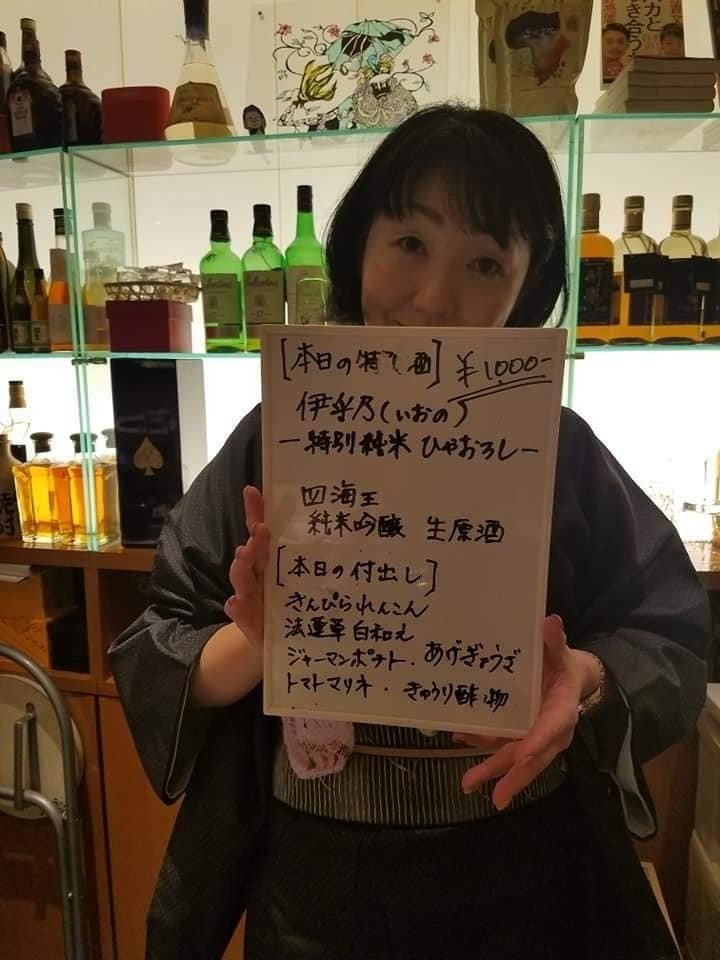 力と
き合う
[本日の特selected酒] ¥1000-
伊乎乃(いおの)
ー特別純米 ひやおろしー
四海王
純米吟醸 生原酒
[本日の付出し]
きんぴられんこん
法蓮草白和え
ジャーマンポテト・あげぎょうざ
トマトマリネ・きゅうり酢の物